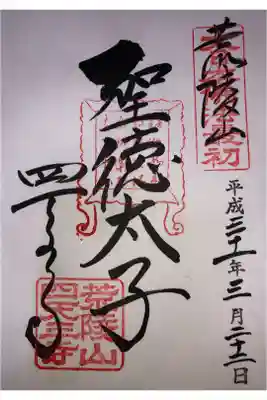 荒陵山
最初
平成三十一年三月二十二日
聖徳太子
四天王寺
荒陵山
四天王寺